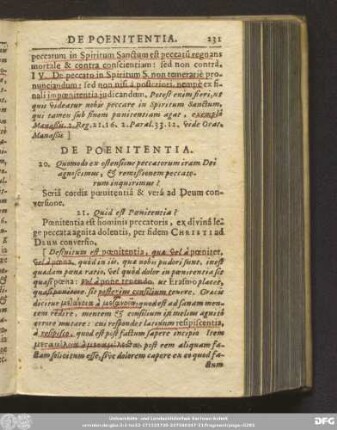 DE POENITENTIA. 231
peccatum in Spiritum Sanctum est peccatū regnans
mortale & contra conscientiam: sed non contrà.
IV. De peccato in Spiritum S. non temerariè pro-
nunciandum: sed non nisi à posteriori, nempè ex fi-
nali impœnitentia judicandum. Potest enim fieri, ut
quis videatur nobis peccare in Spiritum Sanctum,
qui tamen sub finem pœnitentiam agat, exemplo
Manassis. 2. Reg. 21. 16. 2. Paral. 33. 12. vide Orat.
Manassis.]
DE POENITENTIA.
20. Quomodo ex ostensione peccatorum iram Dei
agnoscimus, & remissionem peccato-
rum inquirimus?
Seriâ cordis pœnitentiâ & verâ ad Deum con-
versione.
21. Quid est Pœnitentia?
Pœnitentia est hominis peccatoris, ex divinâ le-
ge peccata agnita dolentis, per fidem CHRISTI ad
Deum conversio.
[Definitum est pœnitentia, quæ vel à pœnitet,
vel à pœna, quòd in iis, quæ nobis pudori sunt, inest
quædam pœna ratio, vel quòd dolor in pœnitentia sit
quasi pœna: vel à pone tenendo, ut Erasmo placet,
quasi ponitere, sit posterius consilium tenere. Græcè
dicitur μετάνοια à μετανοεῖν, quod est ad sanam men-
tem redire, mentem & consilium in melius agnito
errore mutare: cui respondet latinum resipiscentia,
à resipisco, quod est post factum sapere incipio item
μεταμέλεια à μεταμέλομαι, post rem aliquam fa-
ctam solicitum esse, sive dolorem capere ex eo quod fa-
ctum